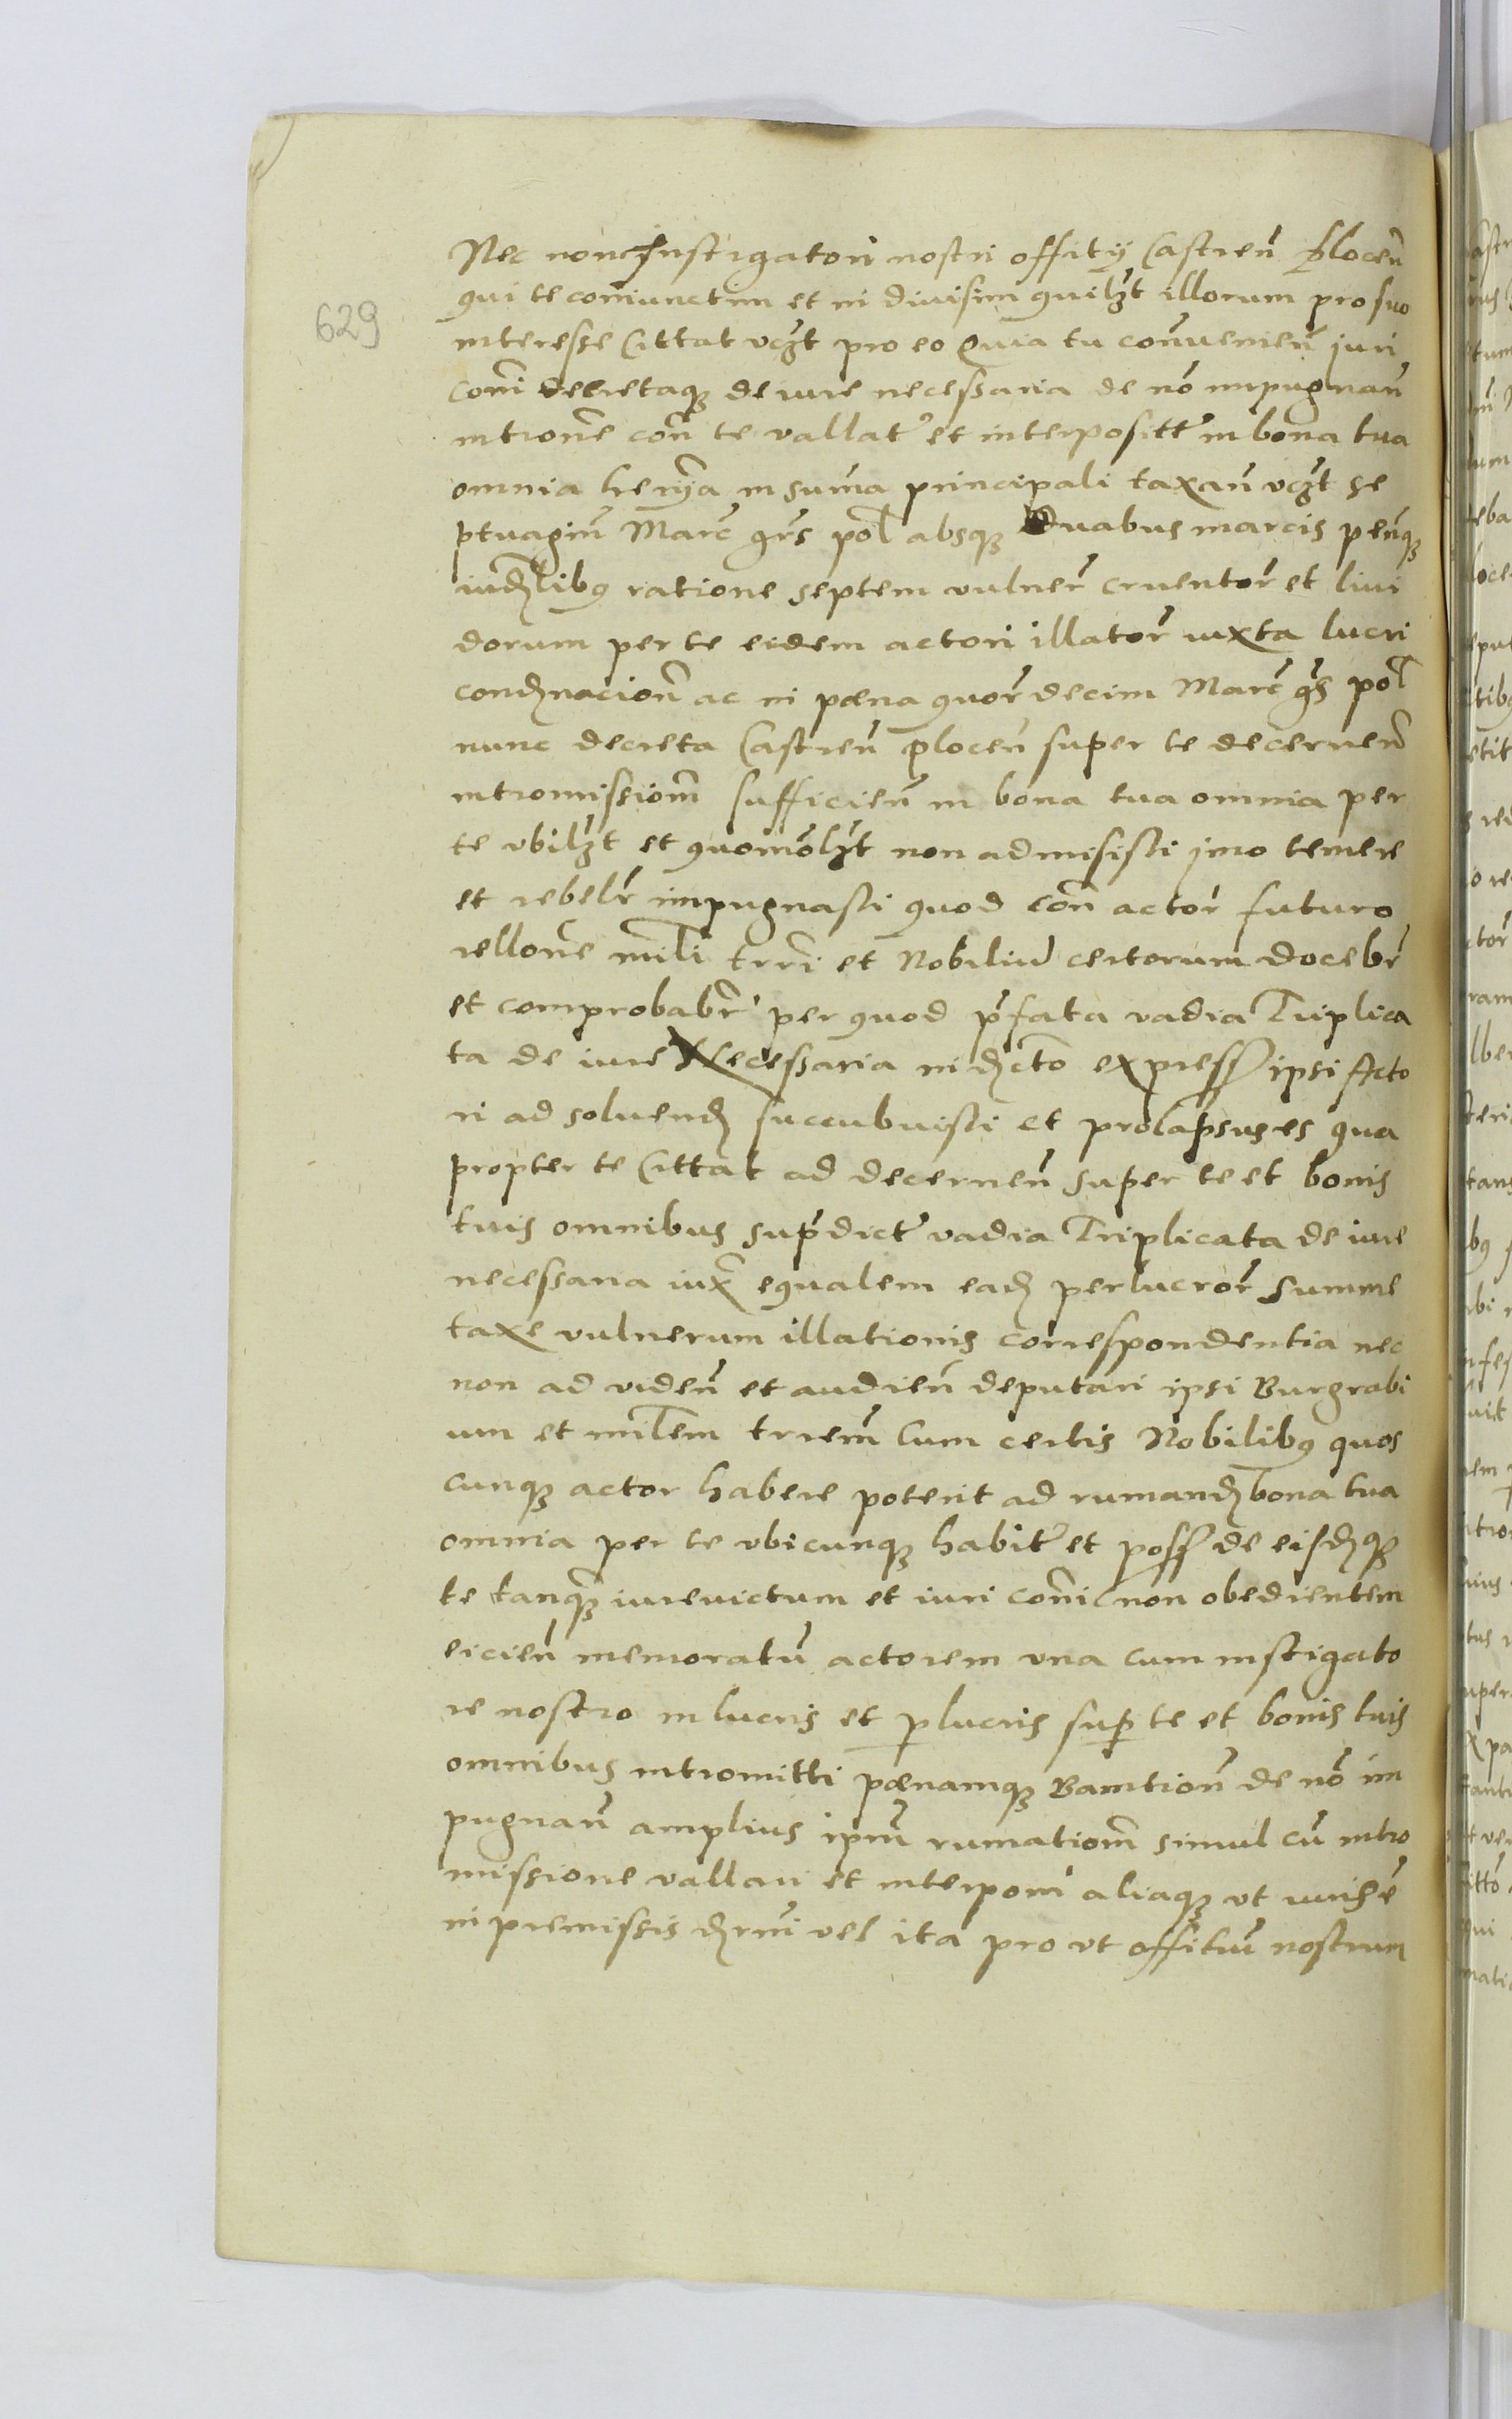 Nec non Instigatori nostri offitij Castren̄ Plocen̄
qui te coniunctim et in diuisim quilʒt illorum pro suo
629
interesse Cittat vcʒt pro eo Quia tu conuenien̄ juri
com̄i decretaqʒ de iure necessaria de nō impugnan̄
introne con̄ te vallat et interposit in bona tua
omnia in suma principali taxan̄ vcʒt se
ptuagin̄ Marc̄ grs pol absqʒ Duabus marcis penqʒ
iudlibꝰ ratione septem vulner̄ cruentor̄ et liui
dorum per te eidem actori illator̄ iuxta lucri
condnacion̄ ac in pœna quor̄ decim Marc̄ grs pol
nunc decreta Castren̄ plocen̄ super te decernen̄
intromissiom̄ sufficien̄ in bona tua omnia per
te vbilʒt et quomolʒt non admisisti jmo temere
et rebelr̄ impugnasti quod con̄ actor futuro
rellone mili trri et Nobiliu certorum docebr̄
et comprobabr̄ per quod p̄fata vadia Triplica
ta de iure Necessaria in dcto express ipsi Acto
ri ad soluend succubuisti et prolapsus es qua
propter te Cittat ad decernen̄ super te et bonis
tuis omnibus sup̄dict vadia Triplicata de iure
necessaria iux̄ equalem ead perlucror̄ summe
taxe vulnerum illationis correspondentia nec
non ad viden̄ et audien̄ deputari ipsi Burgrabi
um et militem trrem̄ Cum certis Nobilibꝰ quos
cunqʒ actor habere poterit ad rumand bona tua
omnia per te vbicunqʒ habit et poss de eisdqʒ
te tanqʒ iurevictum et iuri com̄i non obedientem
eicien̄ memoratū actorem vna cum instigato
re nostro in lucris et ꝑlucris suꝑ te et bonis tuis
omnibus intromitti pœnamqʒ Banition̄ de nō im
pugnan̄ amplius ipm̄ rumatiom̄ simul cū intro
missione vallari et interponi aliaqʒ vt iuris ē
in premissis drni vel ita pro vt offitiū nostrum